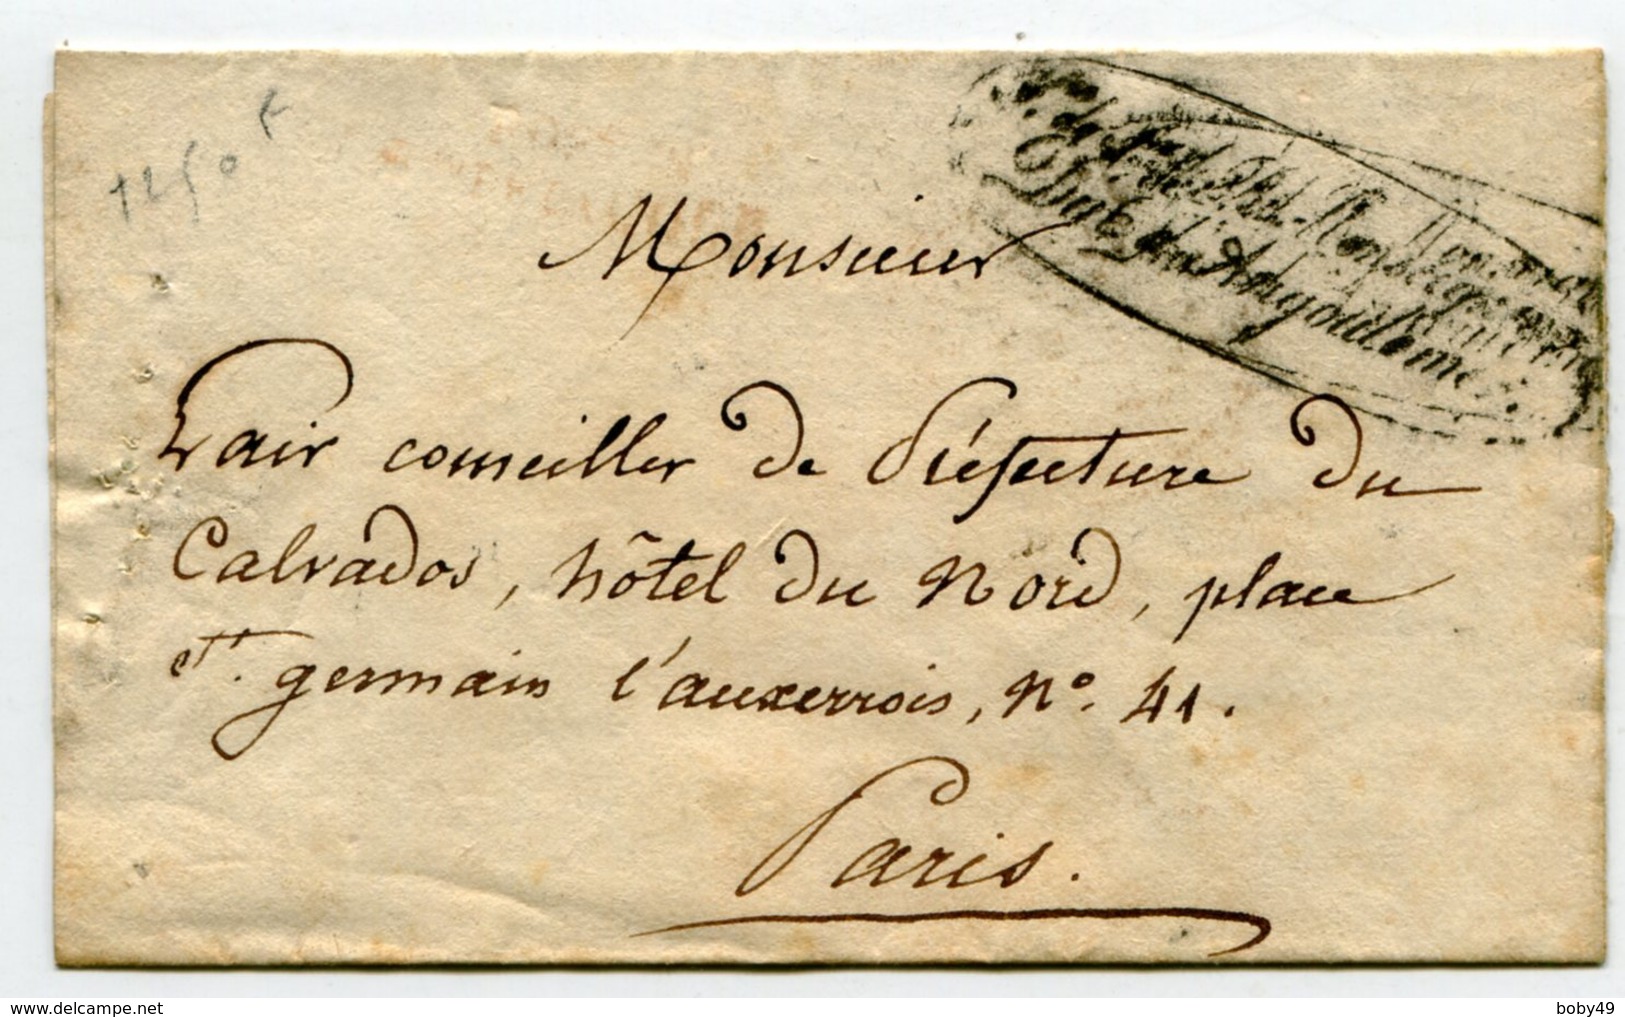 1250 F
Monsieur
Lair conseiller de Préfecture du
Calvados, hôtel du Nord, place
St. germain l'auxerrois, N°. 41.
Paris.
de S. A. R. Monseigneur
Duc d'Angoulême
delcampe.net
boby49